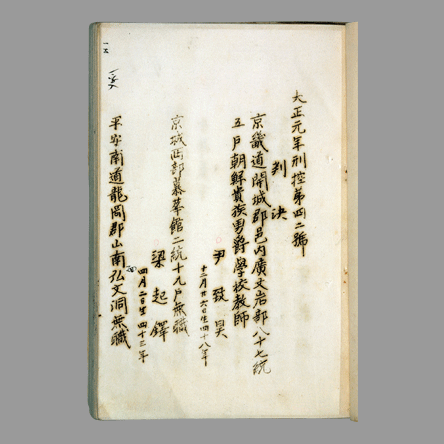 大正元年刑控第四二號
判決
京畿道開城郡邑内廣文岩部八十七統
五戸朝鮮貴族男爵學校教師
尹致昊
十二月廿六日生四十八年
京城西部慕華館二統十九戸無職
梁起鐸
四月二日生四十三年
平安南道龍岡郡山南弘文洞無職